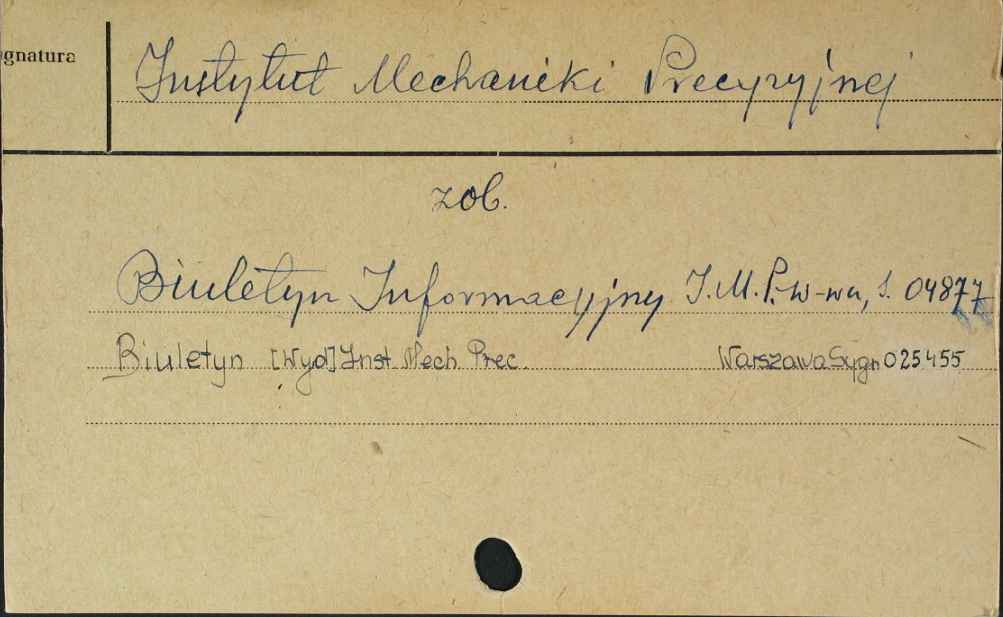 gnatura
Instytut Mechaniki Precyzyjnej
zob.
Biuletyn Informacyjny I.M.P. W-wa, S. 04877
Biuletyn [Wyd] Inst. Mech. Prec. Warszawa Sygn 025455